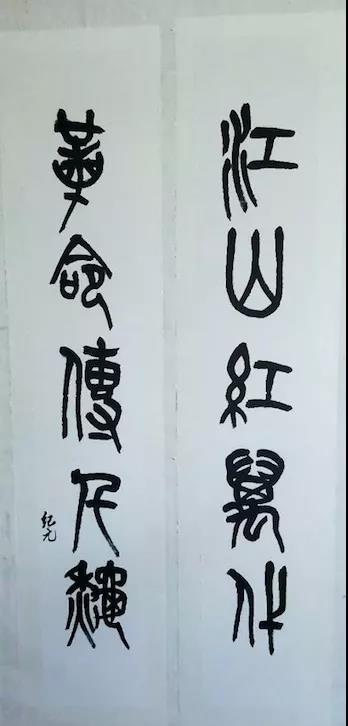 江山紅萬代
革命傳千龝
纪元